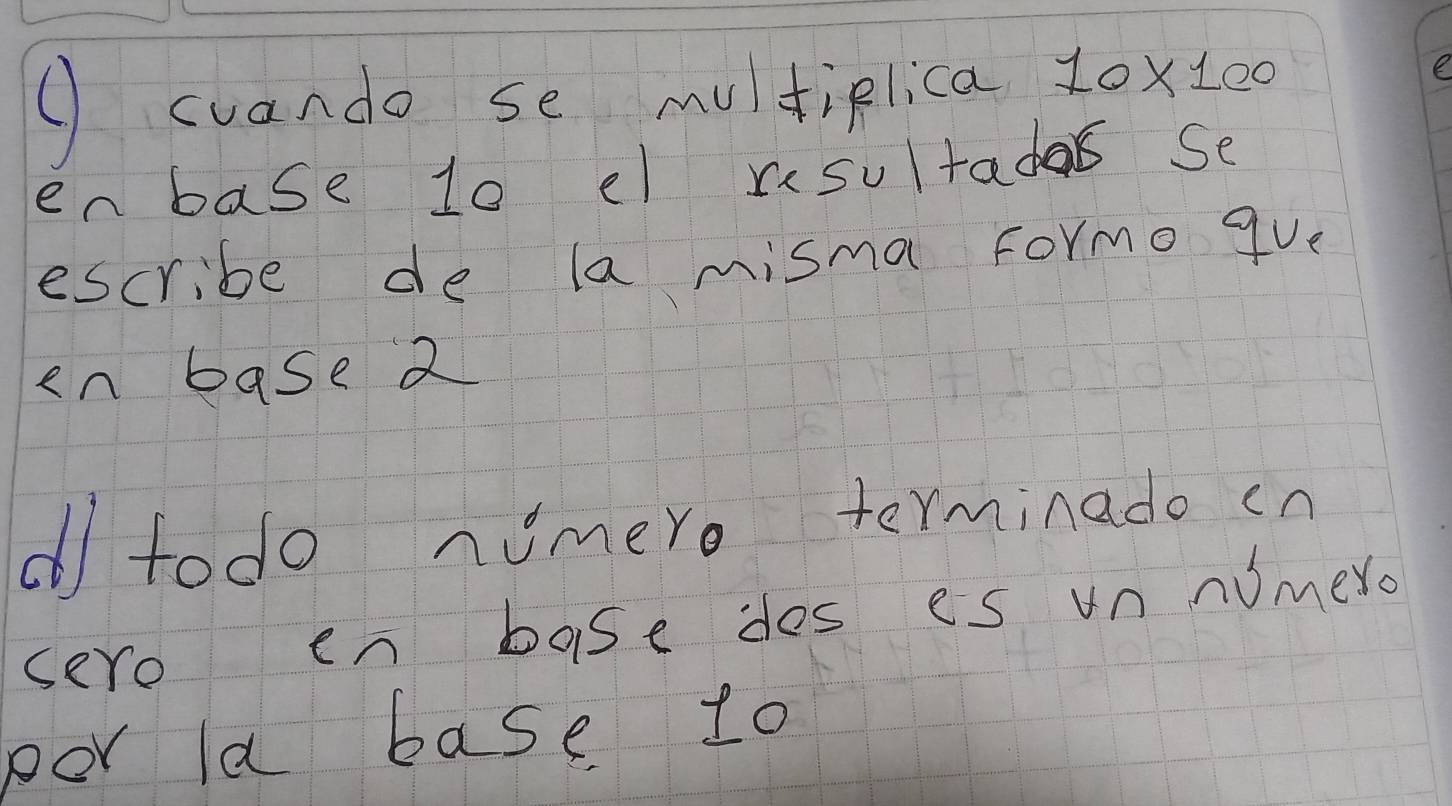 c) cuando se multiplica 10x100
en base 10 el resultados se
escribe de la misma formo que
en base 2
d) todo número terminado en
cero en base dos es un número
por la base 10